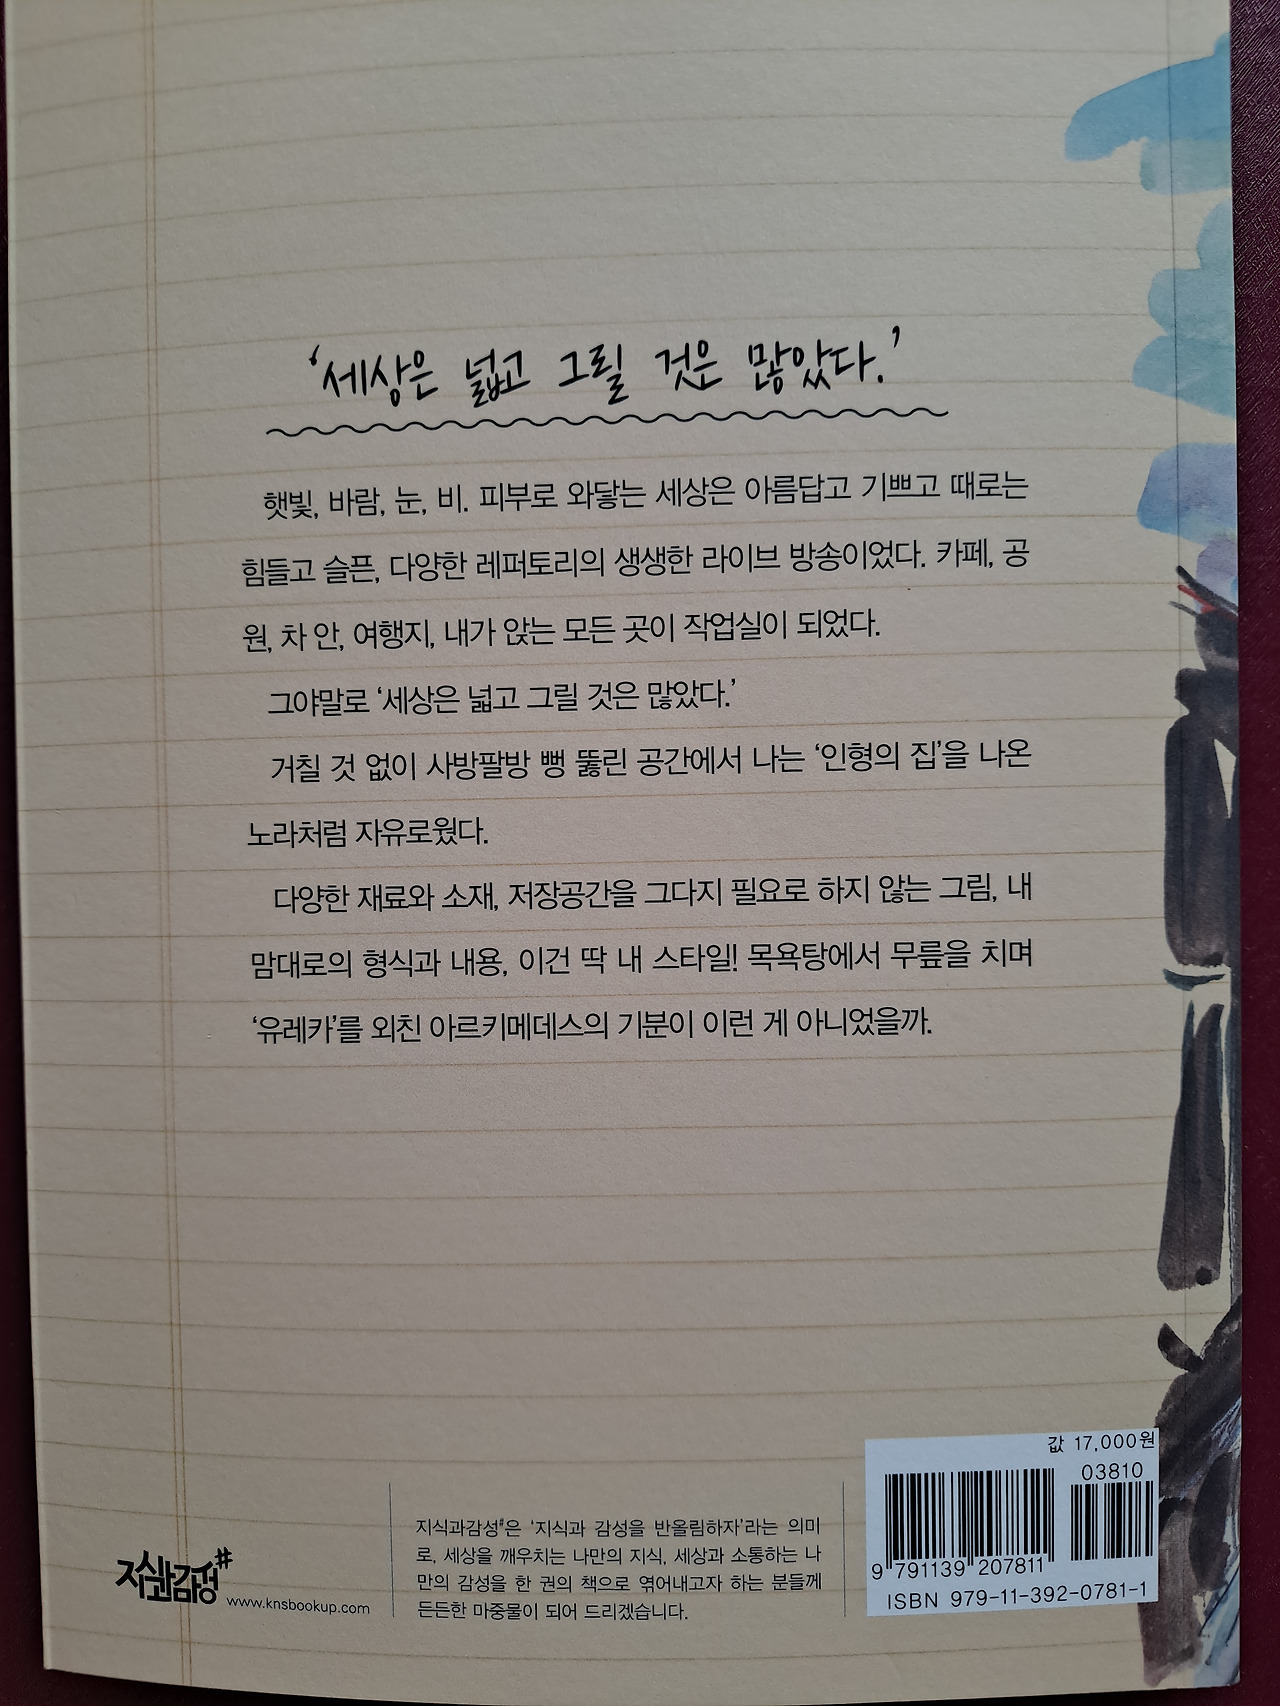 ‘세상은 넓고 그릴 것은 많았다.’
햇빛, 바람, 눈, 비. 피부로 와닿는 세상은 아름답고 기쁘고 때로는
힘들고 슬픈, 다양한 레퍼토리의 생생한 라이브 방송이었다. 카페, 공
원, 차 안, 여행지, 내가 앉는 모든 곳이 작업실이 되었다.
그야말로 ‘세상은 넓고 그릴 것은 많았다.’
거칠 것 없이 사방팔방 뻥 뚫린 공간에서 나는 ‘인형의 집’을 나온
노라처럼 자유로웠다.
다양한 재료와 소재, 저장공간을 그다지 필요로 하지 않는 그림, 내
맘대로의 형식과 내용, 이건 딱 내 스타일! 목욕탕에서 무릎을 치며
‘유레카’를 외친 아르키메데스의 기분이 이런 게 아니었을까.
지식과감성#
www.knsbookup.com
지식과감성#은 ‘지식과 감성을 반올림하자’라는 의미
로, 세상을 깨우치는 나만의 지식, 세상과 소통하는 나
만의 감성을 한 권의 책으로 엮어내고자 하는 분들께
든든한 마중물이 되어 드리겠습니다.
값 17,000원
03810
9 791139 207811
ISBN 979-11-392-0781-1